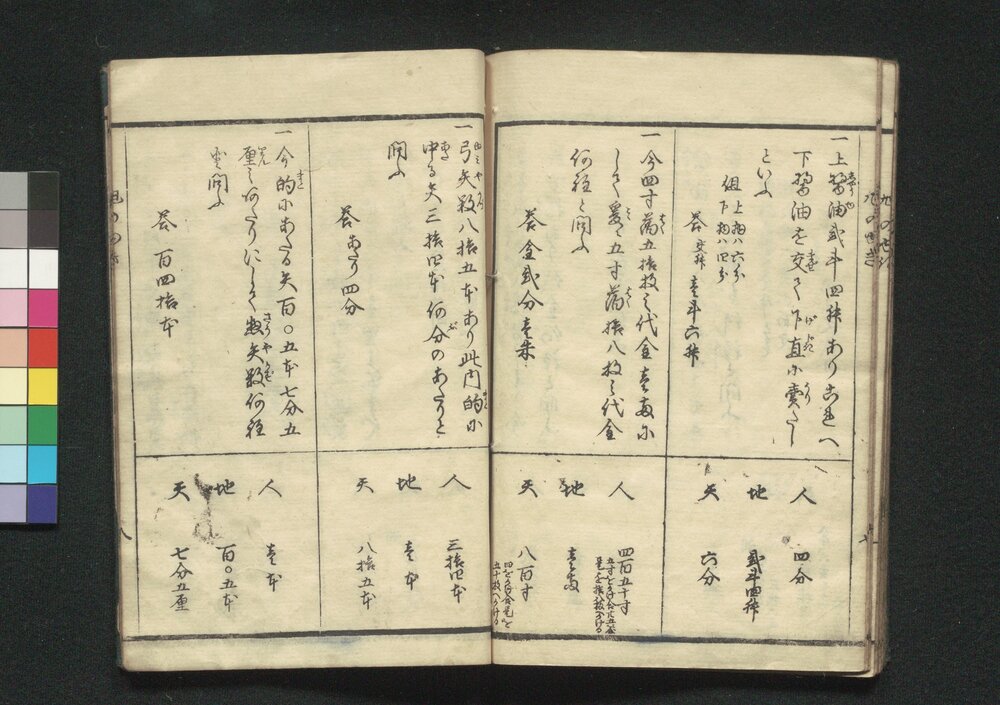 一上醤油弐斗四升あり是へ
下醤油を交て下直に売たし
といふ
但 上相ハ六分
下相ハ四分
答 交升 壱斗六升
人 四分
地 弐斗四升
天 六分
一今四寸蕎五拾枚之代金壱両に
して爰に五寸蕎拾八枚之代金
何程と問ふ
答金弐分壱朱
人 四百五十寸
地 壱両
天 八百寸
一弓矢数八拾五本あり此内的に
中る矢三拾四本何分のあたりと
問ふ
答あたり四分
人 三拾四本
地 壱本
天 八拾五本
一今的にあたる矢百〇五本七分五
厘之あたりにして惣矢数何程
と問ふ
答 百四拾本
人 壱本
地 百〇五本
天 七分五厘
八